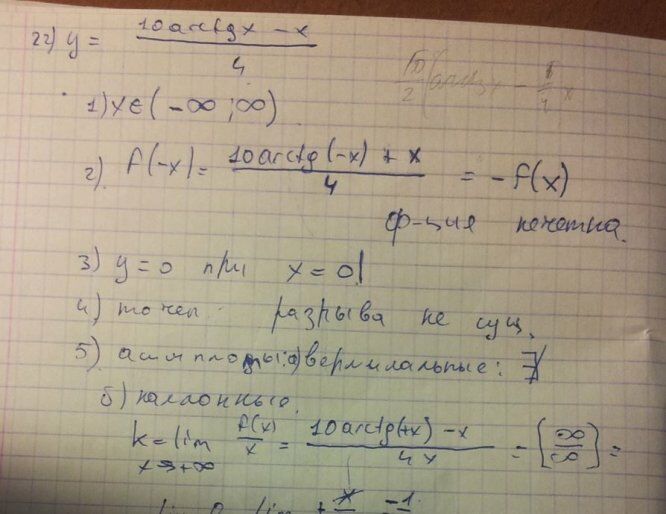 22) y = (10arctgx - x)/4
1) x∈(-∞;∞)
2) f(-x) = (10arctg(-x) + x)/4 = -f(x)
ф-ция нечетна.
3) y=0 при x=0
4) точек разрыва не сущ.
5) асимптоты: а) вертикальные: ∄
б) наклонные.
k = lim x→+∞ f(x)/x = (10arctg(+x) - x)/4x = [∞/∞] =